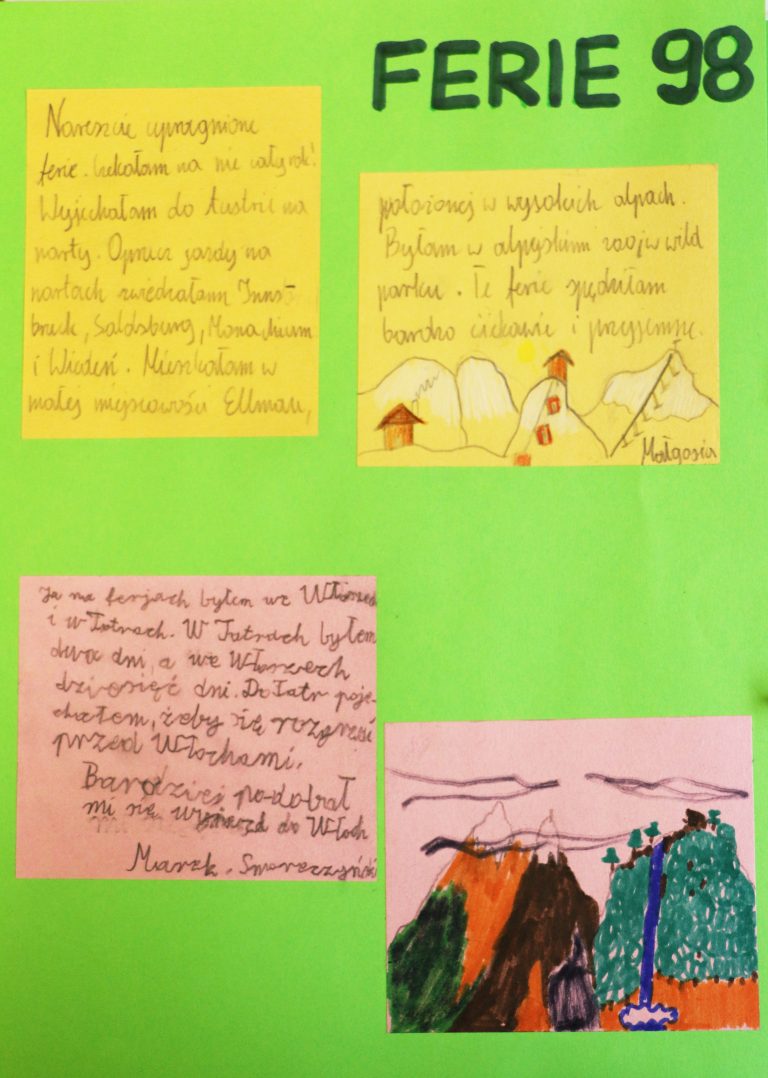 FERIE 98
Nareszcie upragnione
ferie. Czekałam na nie cały rok!
Wyjechałam do Austrii na
narty. Oprucz jazdy na
nartach zwiedzałam Inns-
bruck, Saldsburg, Monachium
i Wiedeń. Mieszkałam w
małej miejscowości Ellmau,
położonej w wysokich alpach.
Byłam w alpejskim zoo w wild
parku. Te ferie spędziłam
bardzo ciekawie i przyjemnie.
Małgosia
Ja na ferjach byłem we Włoszech
i w Tatrach. W Tatrach byłem
dwa dni, a we Włoszech
dziesięć dni. Do Tatr poje-
chałem, żeby się rozgrzać
przed Włochami.
Bardziej podobał
mi się wyjazd do Włoch
Marek. Smoreczyński